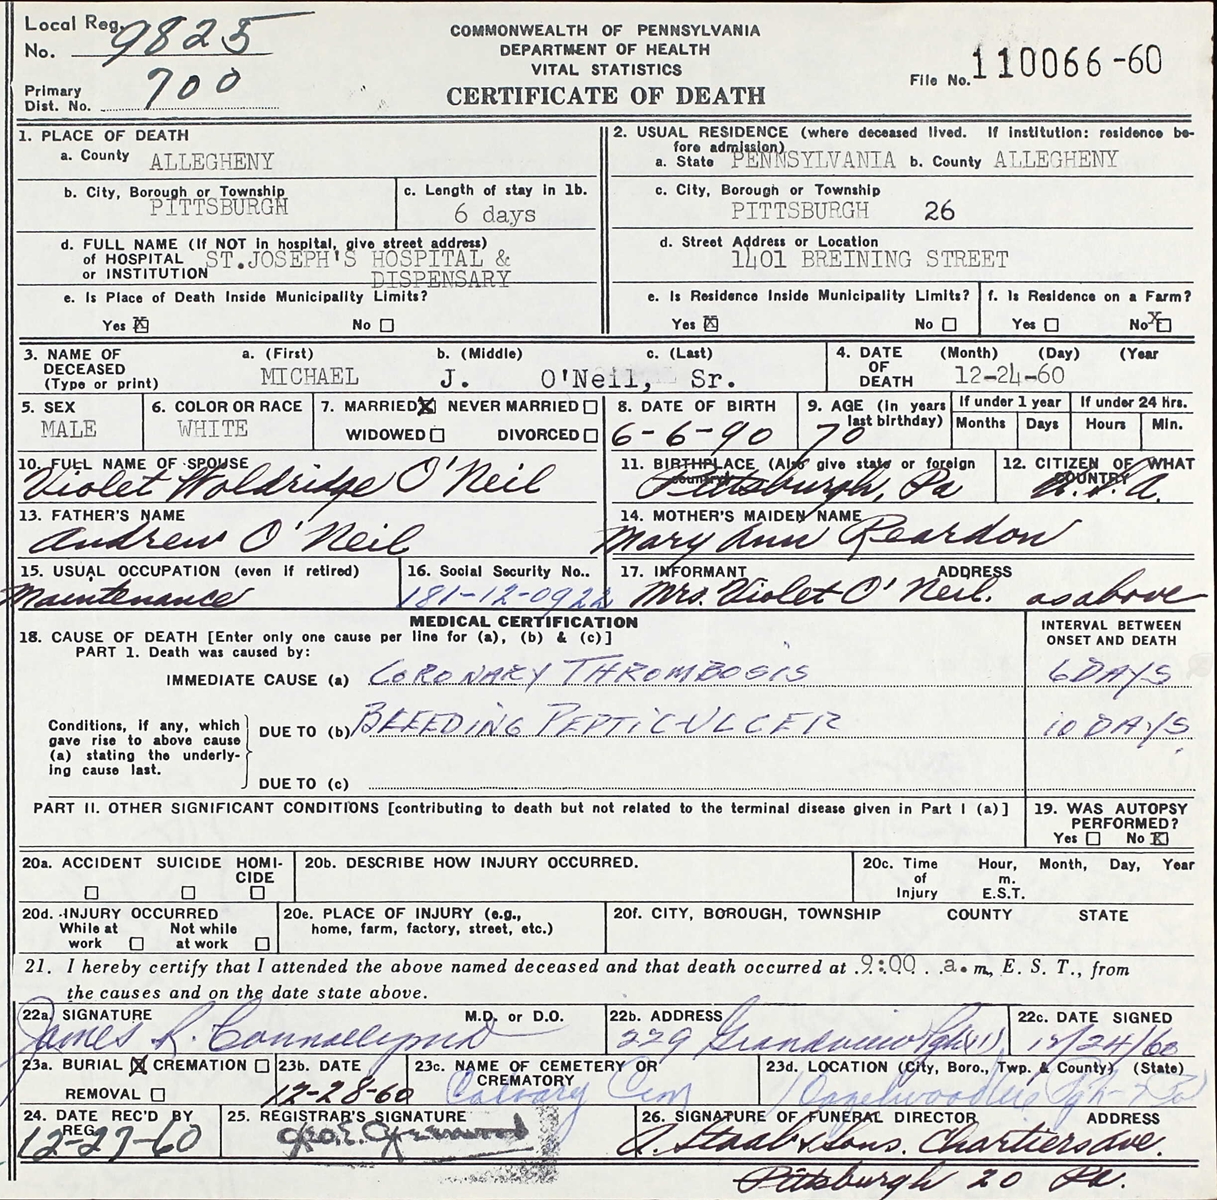 Local Reg. No. 9825
COMMONWEALTH OF PENNSYLVANIA
DEPARTMENT OF HEALTH
VITAL STATISTICS
CERTIFICATE OF DEATH
File No. 110066-60
Primary Dist. No. 700
1. PLACE OF DEATH
a. County ALLEGHENY
b. City, Borough or Township
PITTSBURGH
c. Length of stay in 1b.
6 days
d. FULL NAME (If NOT in hospital, give street address)
of HOSPITAL ST.JOSEPH'S HOSPITAL &
or INSTITUTION DISPENSARY
e. Is Place of Death Inside Municipality Limits?
Yes X No
2. USUAL RESIDENCE (where deceased lived. If institution: residence be-
fore admission)
a. State PENNSYLVANIA b. County ALLEGHENY
c. City, Borough or Township
PITTSBURGH 26
d. Street Address or Location
1401 BREINING STREET
e. Is Residence Inside Municipality Limits? f. Is Residence on a Farm?
Yes X No Yes No X
3. NAME OF DECEASED (Type or print) a. (First) b. (Middle) c. (Last)
MICHAEL J. O'Neil, Sr.
4. DATE OF DEATH (Month) (Day) (Year
12-24-60
5. SEX
MALE
6. COLOR OR RACE
WHITE
7. MARRIED X NEVER MARRIED
WIDOWED DIVORCED
8. DATE OF BIRTH
6-6-90
9. AGE (in years last birthday)
70
If under 1 year If under 24 hrs.
Months Days Hours Min.
10. FULL NAME OF SPOUSE
Violet Woldridge O'Neil
11. BIRTHPLACE (Also give state or foreign country)
Pittsburgh, Pa
12. CITIZEN OF WHAT COUNTRY
U.S.A.
13. FATHER'S NAME
Andrew O'Neil
14. MOTHER'S MAIDEN NAME
Mary Ann Reardon
15. USUAL OCCUPATION (even if retired)
Maintenance
16. Social Security No..
181-12-0922
17. INFORMANT ADDRESS
Mrs. Violet O'Neil. as above
MEDICAL CERTIFICATION
18. CAUSE OF DEATH [Enter only one cause per line for (a), (b) & (c)]
PART 1. Death was caused by:
INTERVAL BETWEEN
ONSET AND DEATH
IMMEDIATE CAUSE (a) CORONARY THROMBOSIS 6 DAYS
Conditions, if any, which
gave rise to above cause
(a) stating the underly-
ing cause last.
DUE TO (b) BLEEDING PEPTIC ULCER 10 DAYS
DUE TO (c)
PART II. OTHER SIGNIFICANT CONDITIONS [contributing to death but not related to the terminal disease given in Part I (a)]
19. WAS AUTOPSY
PERFORMED?
Yes No X
20a. ACCIDENT SUICIDE HOMI-
CIDE
20b. DESCRIBE HOW INJURY OCCURRED.
20c. Time of Injury Hour, Month, Day, Year
m.
E.S.T.
20d. INJURY OCCURRED
While at work Not while at work
20e. PLACE OF INJURY (e.g.,
home, farm, factory, street, etc.)
20f. CITY, BOROUGH, TOWNSHIP COUNTY STATE
21. I hereby certify that I attended the above named deceased and that death occurred at 9:00 a.m, E. S. T., from
the causes and on the date state above.
22a. SIGNATURE M.D. or D.O.
James R. Connolly MD
22b. ADDRESS
229 Grandview Pgh (11)
22c. DATE SIGNED
12/24/60
23a. BURIAL X CREMATION
REMOVAL
23b. DATE
12-28-60
23c. NAME OF CEMETERY OR
CREMATORY
Calvary Cem
23d. LOCATION (City, Boro., Twp. & County) (State)
24. DATE REC'D BY
REG.
12-27-60
25. REGISTRAR'S SIGNATURE
Geo. E. Greenwood
26. SIGNATURE OF FUNERAL DIRECTOR ADDRESS
A. Staab & sons. Chartiers ave.
Pittsburgh 20 Pa.